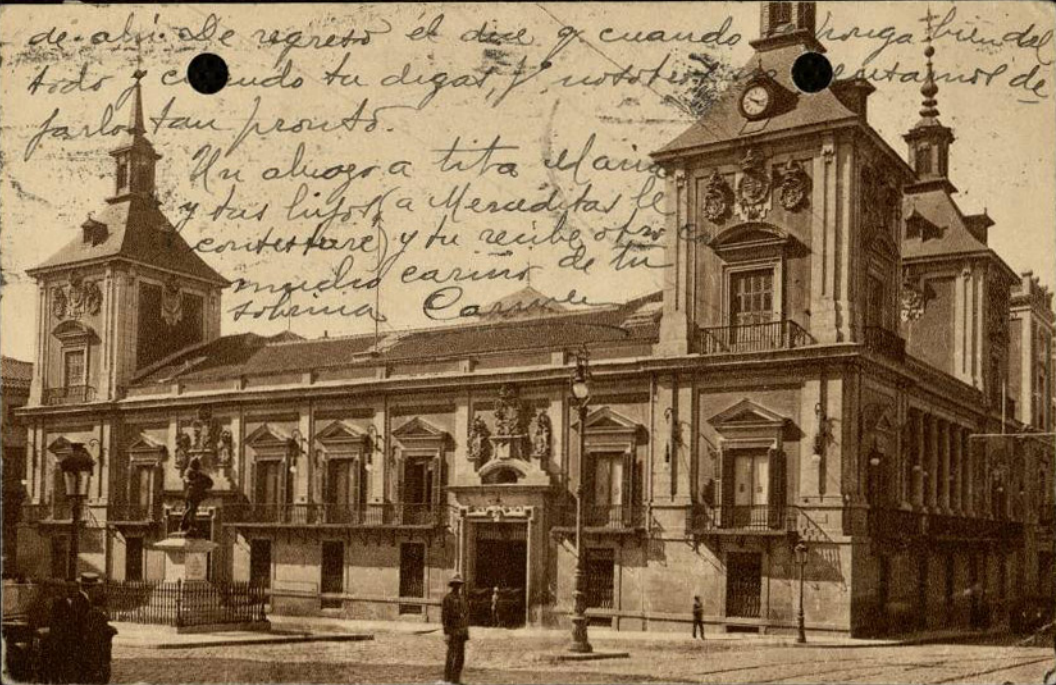 de ahí. De regreso él dice q cuando ponga bien del
todo y cuando tu digas, y nosotros de
tan pronto.
Un abrazo a tita Maria
y tus hijos, (a Merceditas le
contestaré) y tu recibe otro
mucho cariño de tu
sobrina Carmen